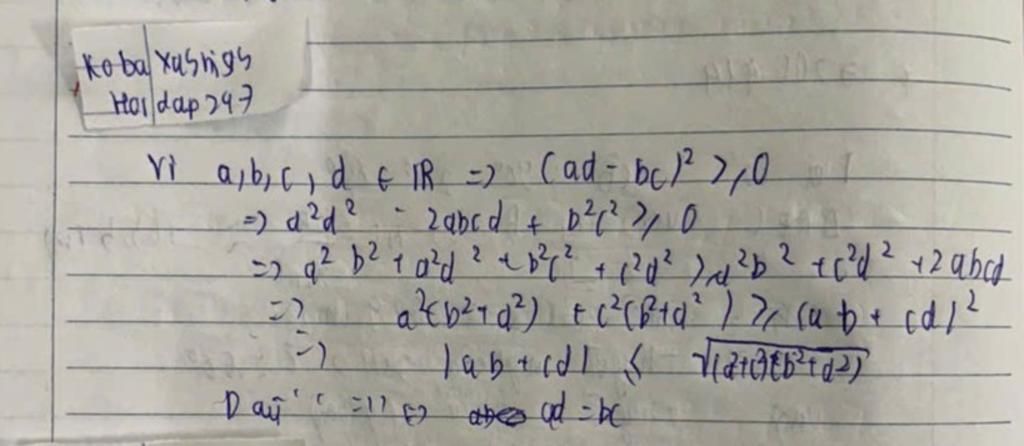 Koba Yasnigs
Hoi dap 247
Vì a, b, c, d ∈ IR => (ad - bc)² ≥ 0
=> a²d² - 2abcd + b²c² ≥ 0
=> a²b² + a²d² + b²c² + c²d² ≥ a²b² + c²d² + 2abcd
=> a²(b² + d²) + c²(b² + d²) ≥ (ab + cd)²
=> |ab + cd| ≤ √(a²+c²)(b²+d²)
Dấu "=" <=> ad = bc